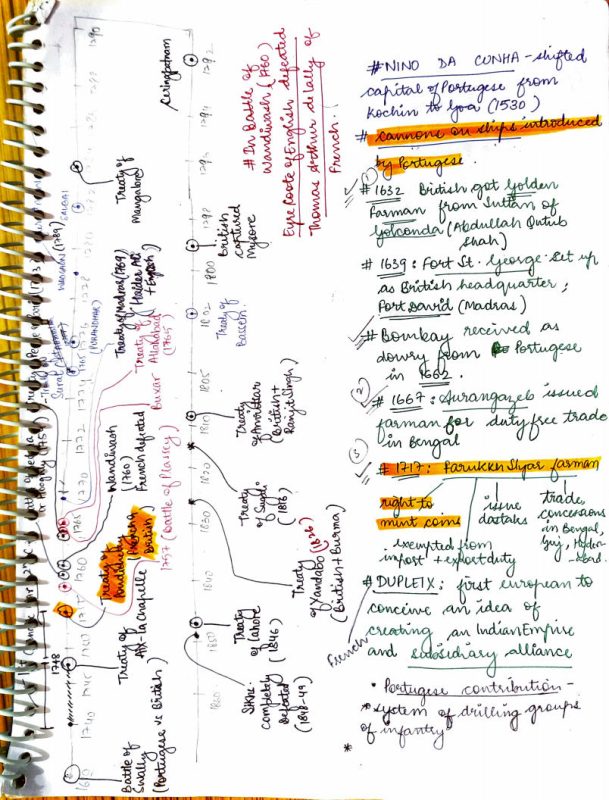 # NINO DA CUNHA - shifted
capital of Portugese from
Kochin to Goa (1530)
# cannons on ships introduced
by Portugese.
①
# 1632 British got Golden
Farman from Sultan of
Golconda (Abdullah Qutub
Shah)
# 1639: Fort St. George set up
as British headquarter;
Fort David (Madras)
# Bombay received as
dowry from Portugese
in 1662.
②
# 1667: Aurangazeb issued
farman for duty free trade
in Bengal
③
# 1717: Farukkh Siyar farman
right to
mint coins
issue
dastaks
trade
concessions
in Bengal,
Guj, Hyder-
abad.
exempted from
import + export duty
# DUPLEIX: first european to
conceive an idea of
creating an Indian Empire
and subsidiary alliance
French
• Portugese contribution -
* system of drilling groups
of infantry
*
# In Battle of
Wandiwash (1760)
Eyre Coote of English defeated
Thomas Arthur de Lally of
French.
1292
Seringpatnam
1294
1298
British
captured
Mysore
1800
1802
Treaty of
Bassein
1805
1810
Treaty
of Amritsar
British +
Ranjit Singh)
1820
Treaty
of Sugali
(1816)
1830
Treaty
of Yandabo (1826)
(British + Burma)
1840
Treaty
of Lahore
(1846)
1850
Sikhs
completely
defeated
(1848-49)
1860
1290
Treaty of
Mangalore
SALBAI
WADGAON
(PURANDHAR)
Treaty of Madras (1769)
Haider Ali
+ English
Treaty of
Allahabad
(1765)
Buxar
Wandiwash
(1760)
French defeated
1757 (Battle of Plassey)
Treaty of
Pondicherry
(French +
British)
Treaty of
Aix-la Chapelle
1748
Battle of
Swally
(Portugese vs British)
1740
1745
1760
1765
1270
1272
1274